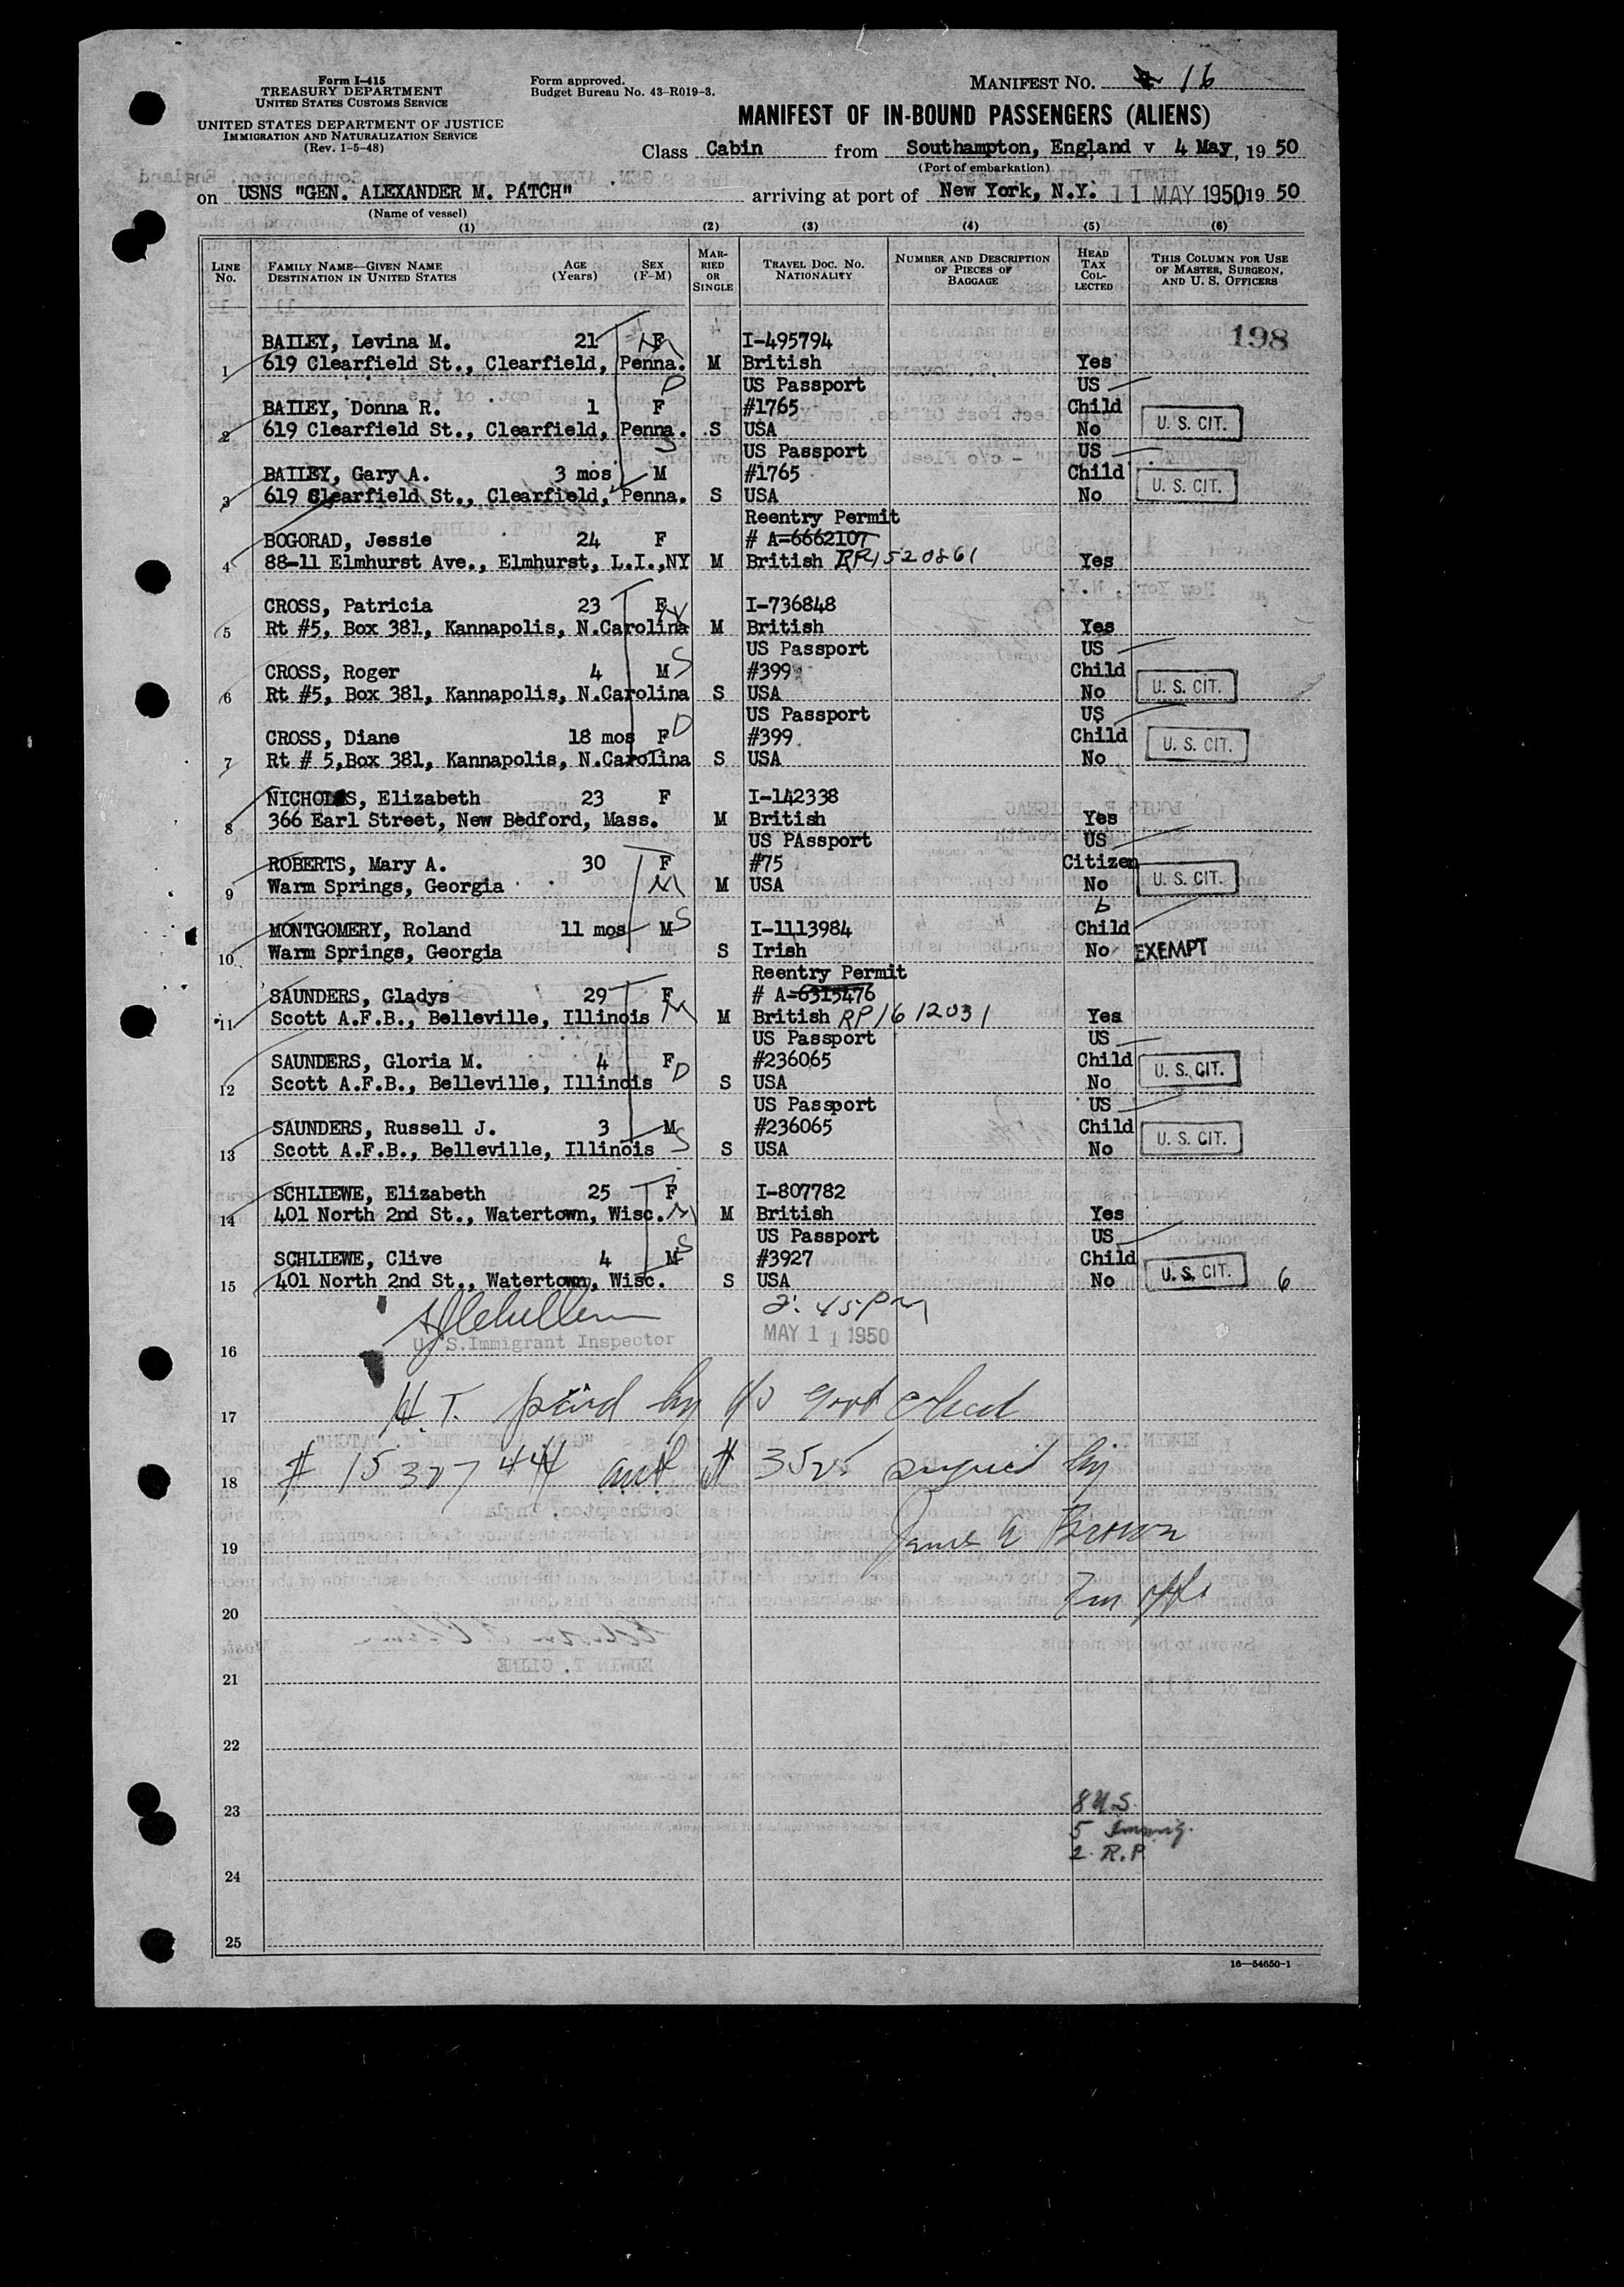 Form I-415
TREASURY DEPARTMENT
UNITED STATES CUSTOMS SERVICE
UNITED STATES DEPARTMENT OF JUSTICE
IMMIGRATION AND NATURALIZATION SERVICE
(Rev. 1-5-48)
Form approved.
Budget Bureau No. 43-R019-3.
MANIFEST NO. 16
MANIFEST OF IN-BOUND PASSENGERS (ALIENS)
Class Cabin from Southampton, England v 4 May, 19 50
(Port of embarkation)
on USNS "GEN. ALEXANDER M. PATCH" arriving at port of New York, N.Y. 11 MAY 1950 19 50
(Name of vessel)
(1) (2) (3) (4) (5) (6)
LINE NO.
FAMILY NAME—GIVEN NAME
DESTINATION IN UNITED STATES
AGE (Years)
SEX (F-M)
MARRIED OR SINGLE
TRAVEL DOC. NO.
NATIONALITY
NUMBER AND DESCRIPTION OF PIECES OF BAGGAGE
HEAD TAX COLLECTED
THIS COLUMN FOR USE OF MASTER, SURGEON, AND U. S. OFFICERS
198
BAILEY, Levina M. 21 F I-495794
1 619 Clearfield St., Clearfield, Penna. M British Yes
US Passport US
BAILEY, Donna R. 1 F #1765 Child
2 619 Clearfield St., Clearfield, Penna. S USA No U. S. CIT.
US Passport US
BAILEY, Gary A. 3 mos M #1765 Child
3 619 Clearfield St., Clearfield, Penna. S USA No U. S. CIT.
Reentry Permit
BOGORAD, Jessie 24 F # A-6662107
4 88-11 Elmhurst Ave., Elmhurst, L.I.,NY M British RP1520861 Yes
CROSS, Patricia 23 F I-736848
5 Rt #5, Box 381, Kannapolis, N.Carolina M British Yes
US Passport US
CROSS, Roger 4 M S #399 Child
6 Rt #5, Box 381, Kannapolis, N.Carolina S USA No U. S. CIT.
US Passport US
CROSS, Diane 18 mos F D #399 Child
7 Rt # 5,Box 381, Kannapolis, N.Carolina S USA No U. S. CIT.
NICHOLS, Elizabeth 23 F I-142338
8 366 Earl Street, New Bedford, Mass. M British Yes
US PAssport US
ROBERTS, Mary A. 30 F #75 Citizen
9 Warm Springs, Georgia M M USA No U. S. CIT.
MONTGOMERY, Roland 11 mos M S I-1113984 Child
10 Warm Springs, Georgia S Irish No EXEMPT
Reentry Permit
SAUNDERS, Gladys 29 F # A-6315476
11 Scott A.F.B., Belleville, Illinois M M British RP1612031 Yes
US Passport US
SAUNDERS, Gloria M. 4 F D #236065 Child
12 Scott A.F.B., Belleville, Illinois S USA No U. S. CIT.
US Passport US
SAUNDERS, Russell J. 3 M #236065 Child
13 Scott A.F.B., Belleville, Illinois S S USA No U. S. CIT.
SCHLIEWE, Elizabeth 25 F I-807782
14 401 North 2nd St., Watertown, Wisc. M M British Yes
US Passport US
SCHLIEWE, Clive 4 M S #3927 Child
15 401 North 2nd St., Watertown, Wisc. S USA No U. S. CIT. 6
2:45 PM
U. S. Immigrant Inspector MAY 11 1950
16
17 H.T. paid by
18 # 15327444 signed by
19 James A Brown
20
21
22
23 8 U.S.
5 Immig.
2 R.P.
24
25
16—54650-1